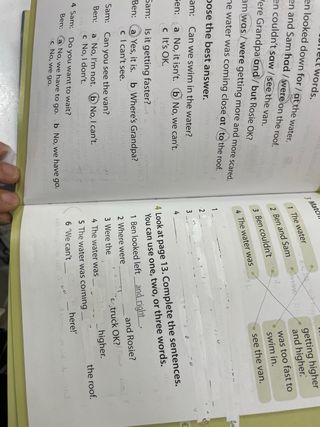 correct words.
en looked down for / at the water.
en and Sam had / were on the roof.
en couldn't saw / see the van.
Were Grandpa and / but Rosie OK?
am was / were getting more and more scared.
he water was coming close at / to the roof.
oose the best answer.
am: Can we swim in the water?
en: a No, it isn't. b No, we can't.
c It's OK.
Sam: Is it getting faster?
Ben: a Yes, it is. b Where's Grandpa?
c I can't see.
Sam: Can you see the van?
Ben: a No, I'm not. b No, I can't.
c No, I don't.
4 Sam: Do you want to wait?
Ben: a No, we have to go. b No, we have to go.
c No, we go.
3 Match
1 The water
2 Ben and Sam
3 Ben couldn't
4 The water was
getting higher
and higher.
was too fast to
swim in.
see the van.
1
2
3
4
4 Look at page 13. Complete the sentences.
You can use one, two, or three words.
1 Ben looked left and right.
2 Where were and Rosie?
3 Were the truck OK?
4 The water was higher.
5 The water was coming the roof.
6 We can't here!